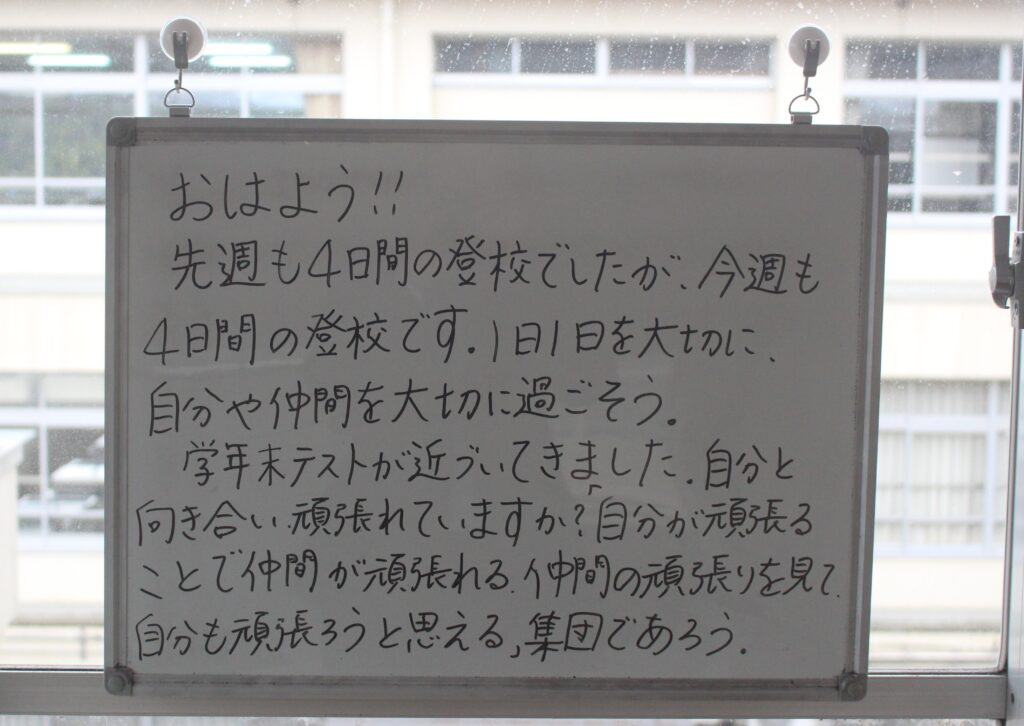 おはよう!!
先週も4日間の登校でしたが、今週も
4日間の登校です。1日1日を大切に、
自分や仲間を大切に過ごそう。
学年末テストが近づいてきました。自分と
向き合い頑張れていますか?自分が頑張る
ことで仲間が頑張れる。仲間の頑張りを見て、
自分も頑張ろうと思える、集団であろう。